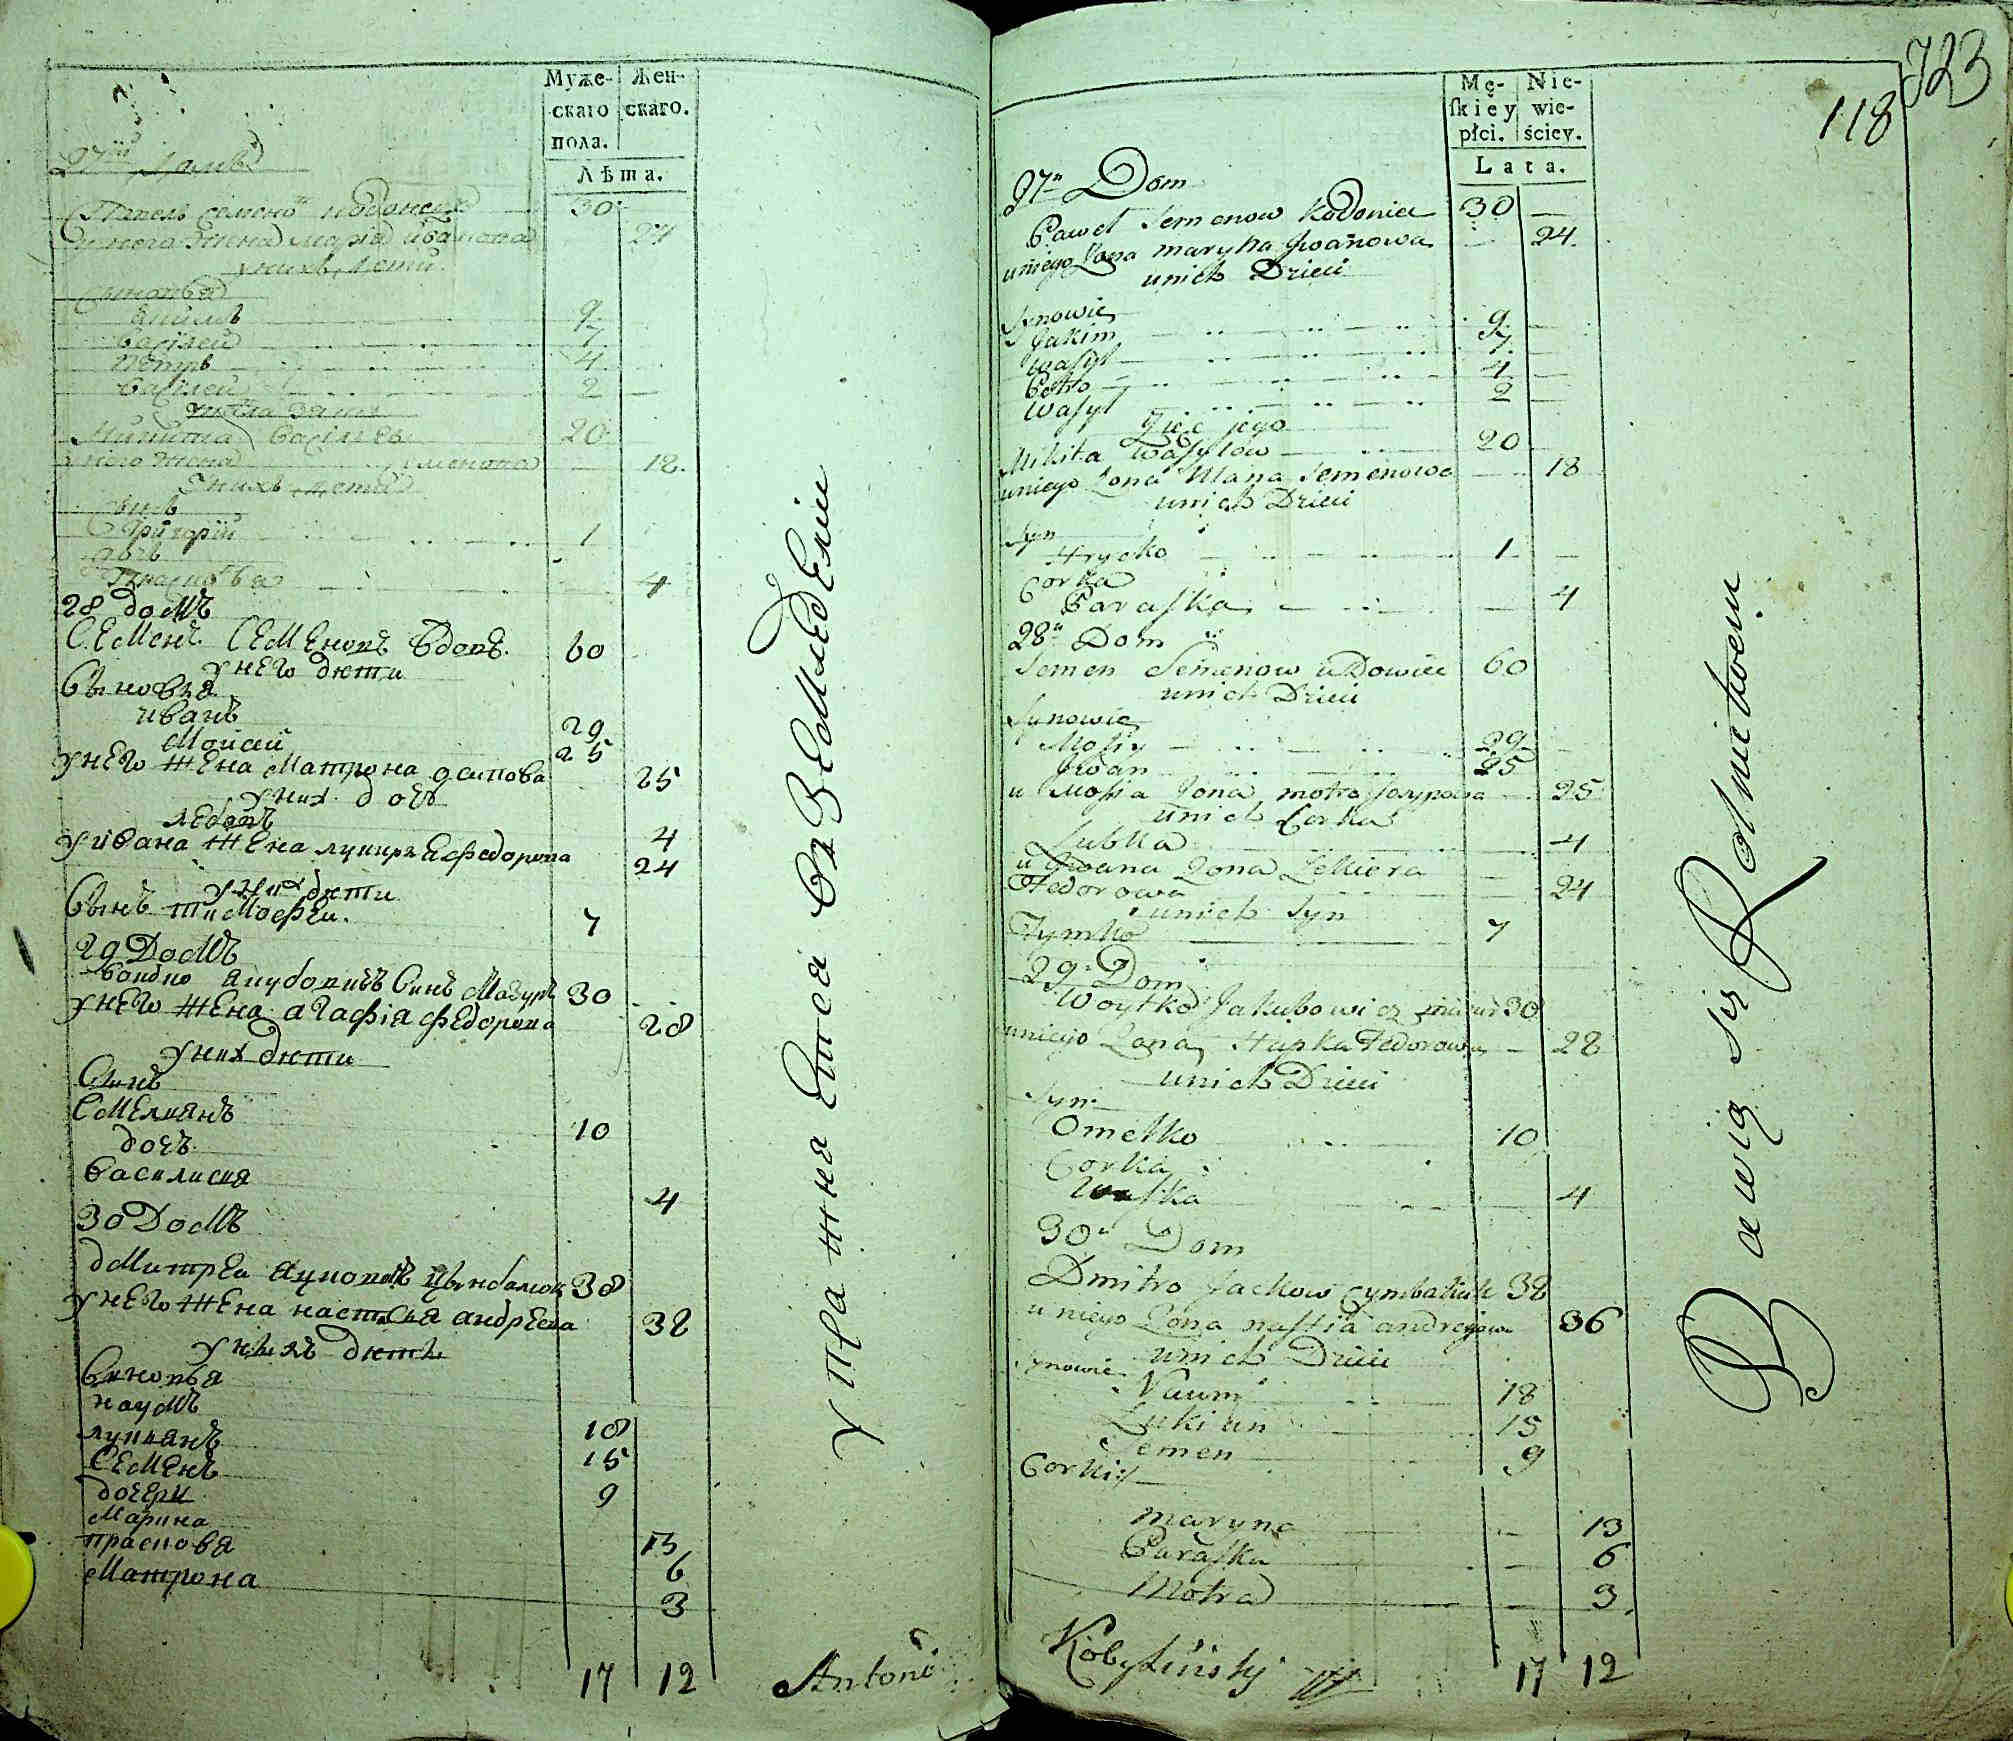 Муже-
скаго
пола.
Жен-
скаго.
Лѣта.
27й домъ
Павелъ Семеновъ 30
у него жена Марія Иванова 24
у нихъ дети
Сыновья
Якимъ 9
Василей 7
Петръ 4
Василей 2
зять
Микита Василевъ 20
у него жена Семенова 18
у нихъ дети
Сынъ
Григорій 1
дочь
Прасковья 4
28 домъ
Семенъ Семеновъ вдовъ 60
у него дети
Сыновья
иванъ 29
Моисей 25
у него жена Матрона осипова 25
у них дочь
4
у ивана жена федорова 24
у них дети
Сынъ тимофеи 7
29 Домъ
Сынъ Мазуръ 30
у него жена агафія федорова 28
у них дети
Сынъ
Емелианъ 10
дочь
Василисия 4
30 Домъ
дмитреи яцковъ цынбалюк 38
у него жена настасья андреева 38
у нихъ дети
Сыновья
наумъ 18
лукиянъ 15
Семенъ 9
дочери
Марина 13
прасковя 6
Матрона 3
17 12
Antoni
723
118
Mę-
skiey
płci.
Nie-
wie-
ściey.
Lata.
27n Dom
Paweł Semenow Kodoniec 30
uniego Żona maryna Jwanowa 24
unich Dzieci
Synowie
Jakim 9
Wasyl 7
Petro 4
Wasyl 2
Zięć jego
Mikita Wasylow 20
uniego Żona Ulana Semenowa 18
unich Dzieci
Syn
Hrycko 1
Corka
Paraska 4
28n Dom
Semen Semenow uDowiec 60
unich Dzieci
Synowie
Mosiy 29
Jwan 25
u Mosia Żona motra Josypowa 25
unich Corka
Lubka 4
u Jwana Żona Lukiera
Fedorowa 24
unich Syn
Tymko 7
29n Dom
Woytko Jakubowicz mazur 30
uniego Żona Hapka Fedorowa 28
unich Dzieci
Syn
Omelko 10
Corka
4
30n Dom
Dmitro Jackow Cymbaliuk 38
uniego Żona nastia andrejowa 36
unich Dzieci
Synowie
Naum 18
Lukian 15
Semen 9
Corki
maryna 13
Paraska 6
Motra 3
Kobyliński
17 12